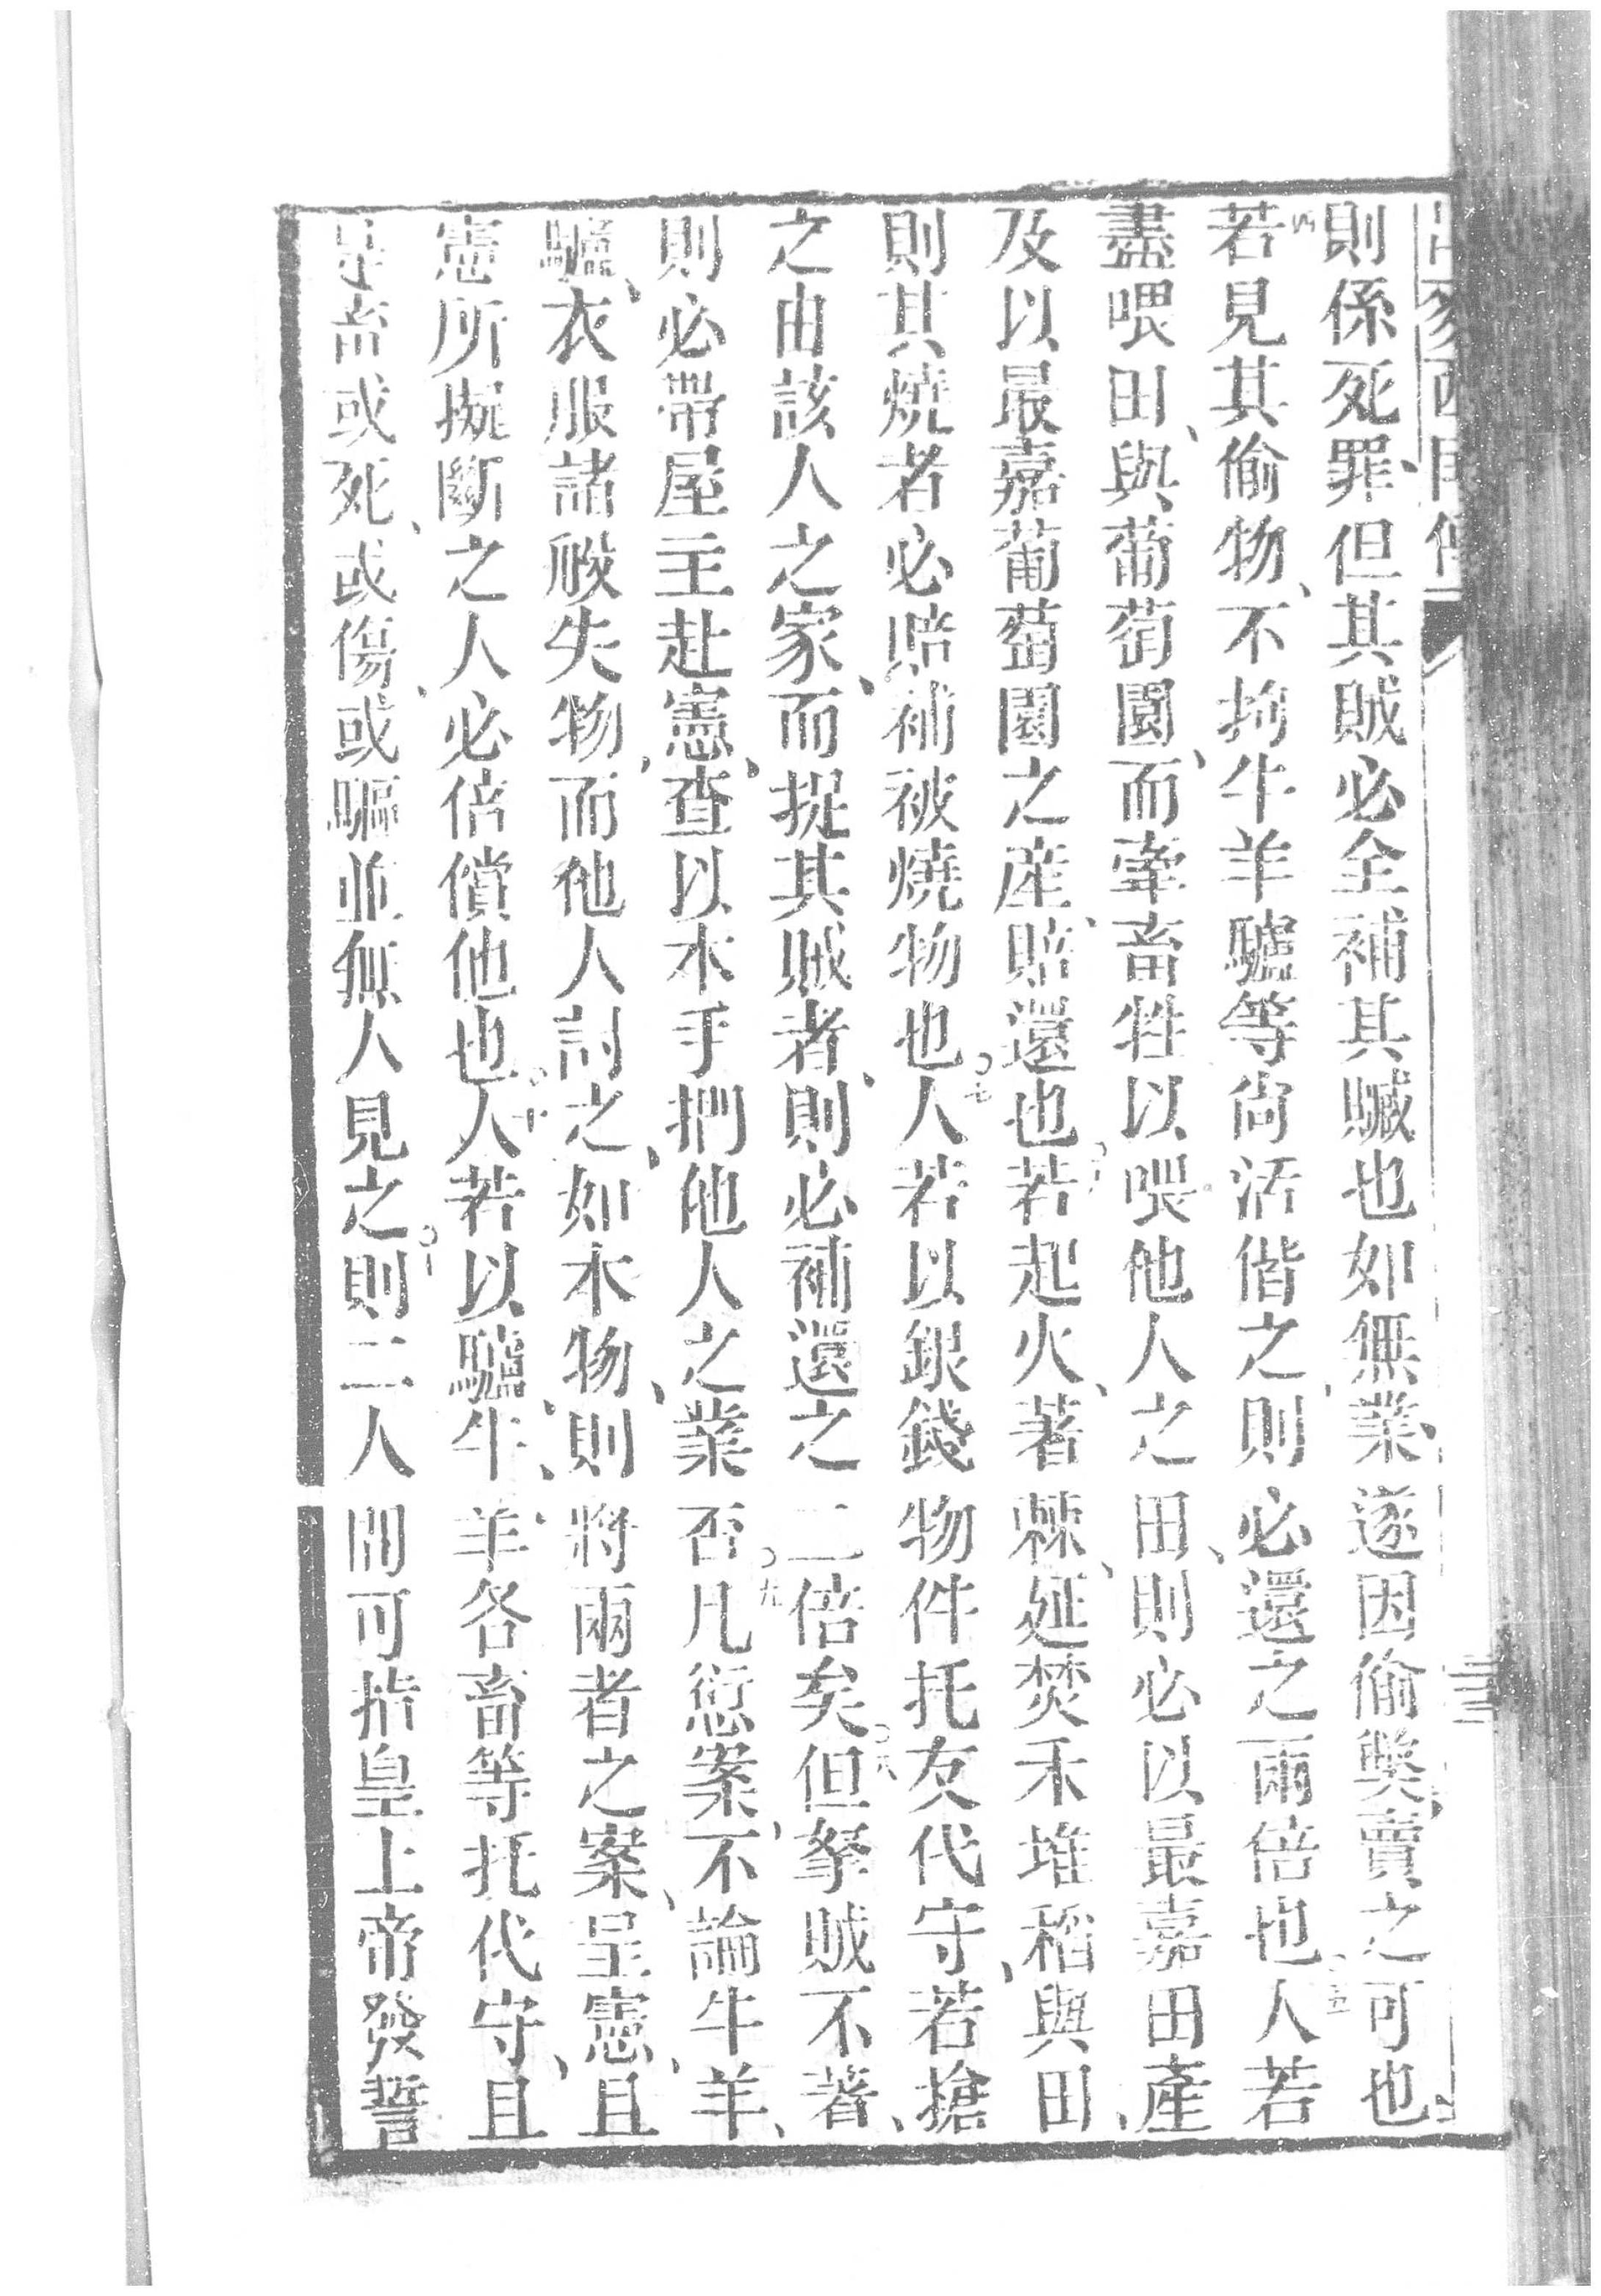 則係死罪、但其賊必全補其贓也如無業、遂因偷獘、賣之可也
若見其偷物、不拘牛羊驢等尙活偕之、則必還之兩倍也人若
盡喂田、與葡萄園、而牽畜牲以喂他人之田、則必以最嘉田產、
及以最嘉葡萄園之產、賠還也若起火、著棘、延焚禾堆稻與田
則其燒者必賠補被燒物也〇七人若以銀錢物件托友代守、若搶
之由該人之家、而捉其賊者、則必補還之二倍矣〇八但拏賊不著、
則必帶屋主赴憲、查以本手捫他人之業否〇九凡愆案、不論牛羊、
驢、衣服諸般失物、而他人討之、如本物、則將兩者之案、呈憲、且
憲所擬斷之人必倍償他也〇十人若以驢、牛、羊、各畜等托代守、且
畜或死、或傷、或驅並無人見之〇十一則二人間可指皇上帝發誓
三